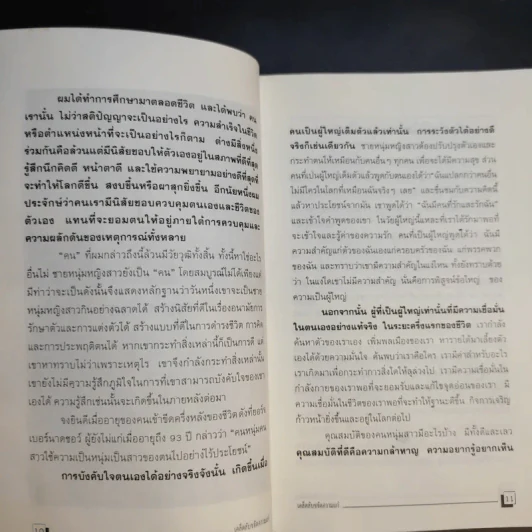 ผมได้ทำการศึกษามาตลอดชีวิต และได้พบว่า คน
เรานั้น ไม่ว่าสติปัญญาจะเป็นอย่างไร ความสำเร็จในชีวิต
หรือตำแหน่งหน้าที่จะเป็นอย่างไรก็ตาม ต่างมีสิ่งหนึ่ง
ร่วมกันคือล้วนแต่มีนิสัยชอบให้ตัวเองอยู่ในสภาพที่ดีที่สุด
รู้สึกนึกคิดดี หน้าตาดี และใช้ความพยายามอย่างดีที่สุดที่
จะทำให้โลกดีขึ้น สงบขึ้นหรือผาสุกยิ่งขึ้น อีกนัยหนึ่งผม
ประจักษ์ว่าคนเรามีนิสัยชอบควบคุมตนเองและชีวิตของ
ตัวเอง แทนที่จะยอมตนให้อยู่ภายใต้การควบคุมและ
ความผลักดันของเหตุการณ์ทั้งหลาย
"คน" ที่ผมกล่าวถึงนี้ล้วนมีวัยวุฒิทั้งสิ้น ทั้งนี้หาใช่อะไร
อื่นไม่ ชายหนุ่มหญิงสาวยังเป็น "คน" โดยสมบูรณ์ไม่ได้เพียงแต่
มีท่าว่าจะเป็นดังนั้นจึงแสดงหลักฐานว่าวันหนึ่งเขาจะเป็นชาย
หนุ่มหญิงสาวที่อย่างฉลาดได้ สร้างนิสัยที่ดีในเรื่องอนามัยการ
รักษาตัวและการแต่งตัวได้ สร้างแบบที่ดีในการดำรงชีวิต การคิด
และการประพฤติตนได้ หากเขากระทำสิ่งเหล่านี้ก็เป็นการดี แต่
เขาหาทราบไม่ว่าเพราะเหตุไร เขาจึงกำลังกระทำสิ่งเหล่านั้น
เขายังไม่มีความรู้สึกภูมิใจในการที่เขาสามารถบังคับใจของเขา
เองได้ ความรู้สึกเช่นนั้นจะเกิดขึ้นในภายหลังต่อมา
จงยินดีเมื่ออายุของคนเข้าขีดครึ่งหลังของชีวิตดังที่ยอร์จ
เบอร์นาดชอว์ ผู้ยังไม่แก่เมื่ออายุถึง 93 ปี กล่าวว่า "คนหนุ่มคน
สาวใช้ความเป็นหนุ่มเป็นสาวของตนไปอย่างไร้ประโยชน์"
การบังคับใจตนเองได้อย่างจริงจังนั้น เกิดขึ้นเมื่อ
10
คนเป็นผู้ใหญ่เต็มตัวแล้วเท่านั้น การระวังตัวได้อย่างดี
จริงก็เช่นเดียวกัน ชายหนุ่มหญิงสาวต้องปรับปรุงตัวเองและ
กระทำตนให้เหมือนกับคนอื่นๆ ทุกคน เพื่อจะได้มีความสุข ส่วน
คนที่เป็นผู้ใหญ่เต็มตัวแล้วพูดกับตนเองได้ว่า "ฉันแปลกกว่าคนอื่น
ไม่มีใครในโลกที่เหมือนฉันจริงๆ เลย" และชื่นชมกับความคิดนี้
แล้วหาประโยชน์จากมัน เขาพูดได้ว่า "ฉันมีคนที่รักและรักฉัน"
และเข้าใจคำพูดของเขา ในวัยผู้ใหญ่นี้แหละที่เราได้รักษาพอที่
จะเข้าใจและรู้ค่าของความรัก คนที่เป็นผู้ใหญ่พูดได้ว่า ฉันมี
ความสำคัญแก่ตัวของฉันเองแก่ครอบครัวของฉัน แก่พรรคพวก
ของฉัน และทราบว่าเขามีความสำคัญในแง่ไหน ทั้งยังทราบด้วย
ว่า ในแง่ใดเขาไม่มีความสำคัญ นั่นคือการพิสูจน์ข้อใหญ่ ของ
ความเป็นผู้ใหญ่
นอกจากนั้น ผู้ที่เป็นผู้ใหญ่เท่านั้นที่มีความเชื่อมั่น
ในตนเองอย่างแท้จริง ในระยะครึ่งแรกของชีวิต เรากำลัง
ค้นหาตัวของเราเอง เพิ่มพลเมืองของเรา หารายได้มาเลี้ยงตัว
เองได้ด้วยความมั่นใจ ค้นพบว่าเราคือใคร เรามีค่าสำหรับอะไร
เราเกิดมาเพื่อกระทำภารกิจสิ่งใดให้ลุล่วงไป เรามีความเชื่อมั่นใน
กำลังกายของเราพอที่จะยอมรับและแก้ไขจุดอ่อนของเรา มี
ความเชื่อมั่นในชีวิตของเราพอที่จะทำให้ฐานะดีขึ้น กิจการเจริญ
ก้าวหน้ายิ่งขึ้นและอยู่ในโลกต่อไป
คุณสมบัติของคนหนุ่มสาวมีอะไรบ้าง มีทั้งดีและเลว
คุณสมบัติที่ดีคือความกล้าหาญ ความอยากรู้อยากเห็น
11